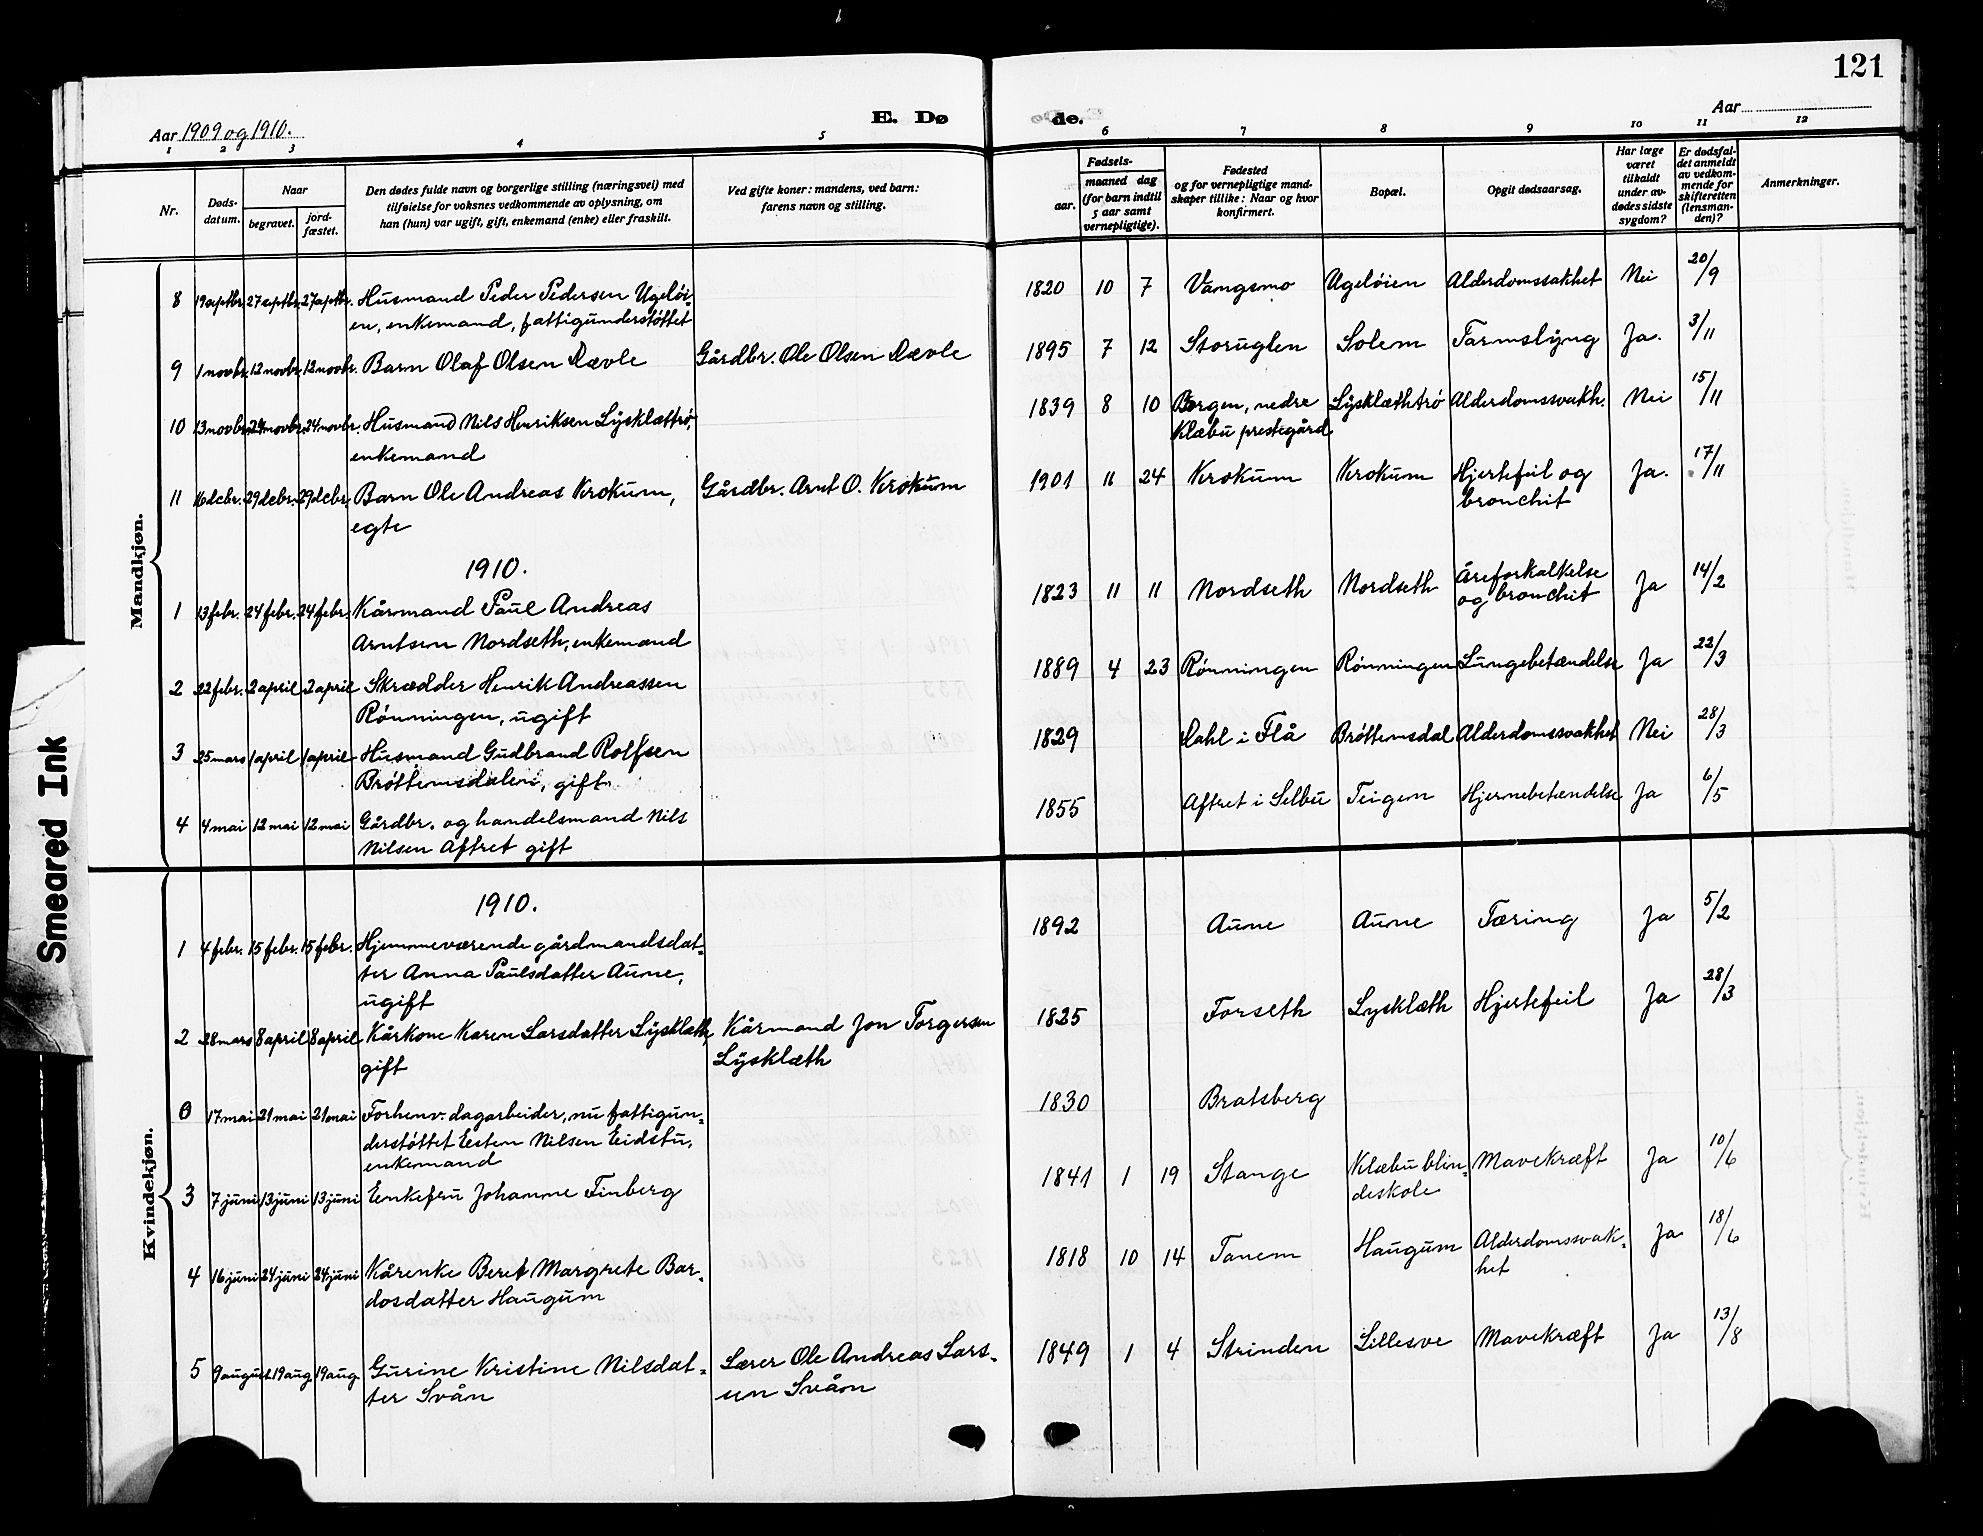 121
E. Dø
de.
Aar 1909 og 1910.
Aar
1 2 3 4 5 6 7 8 9 10 11 12
Nr.
Døds-
datum.
Naar
begravet.
jord-
fæstet.
Den dødes fulde navn og borgerlige stilling (næringsvei) med
tilføielse for voksnes vedkommende av oplysning, om
han (hun) var ugift, gift, enkemand (enke) eller fraskilt.
Ved gifte koner: mandens, ved barn:
farens navn og stilling.
Fødsels-
aar.
maaned dag
(for barn indtil
5 aar samt
vernepligtige).
Fødested
og for vernepligtige mand-
skaper tillike: Naar og hvor
konfirmert.
Bopæl.
Opgit dødsaarsag.
Har læge
været
tilkaldt
under av-
dødes sidste
sygdom?
Er dødsfal-
det anmeldt
av vedkom-
mende for
skifteretten
(lensman-
den)?
Anmerkninger.
Mandkjøn.
8 19 septbr. 27 septbr. 27 septbr. Husmand Peder Pedersen Ugeløi-
en, enkemand, fattigunderstøttet
1820 10 7 Vangsmo Ugeløien Alderdomssvakhet Nei 20/9
9 1 novbr. 12 novbr. 12 novbr. Barn Olaf Olsen Rævle Gårdbr. Ole Olsen Rævle
1895 7 12 Storuglen Solem Tarmslyng Ja. 3/11
10 13 novbr. 24 novbr. 24 novbr. Husmand Nils Henriksen Lysklættrø,
enkemand
1839 8 10 Borgen, nedre Lysklæthtrø Alderdomssvakh. Nei 15/11
Klæbu prestegård
11 16 dcbr. 29 dcbr. 29 dcbr. Barn Ole Andreas Krokum, Gårdbr. Arnt O. Krokum
egte
1901 11 24 Krokum Krokum Hjertefeil og Ja. 17/11
bronchit
1910.
1 13 febr. 24 febr. 24 febr. Kårmand Paul Andreas
Arntsen Nordseth, enkemand
1823 11 11 Nordseth Nordseth Åreforkalkelse Ja 14/2
og bronchit
2 22 febr. 2 april 2 april Skrædder Henrik Andreassen
Rønningen, ugift
1889 4 23 Rønningen Rønningen Lungebetændelse Ja 22/3
3 25 mars 1 april 1 april Husmand Gudbrand Rolfsen
Brøttemsdalen, gift.
1829 Dahl i Flå Brøttemsdal Alderdomssvakhet Nei 28/3
4 4 mai 12 mai 12 mai Gårdbr. og handelsmand Nils
Nilsen Aftret gift
1855 Aftret i Selbu Teigen Hjernebetændelse Ja 6/5
Kvindekjøn.
1910.
1 4 febr. 15 febr. 15 febr. Hjemmeværende gårdmandsdat-
ter Anna Paulsdatter Aune,
ugift
1892 Aune Aune Tæring Ja 5/2
2 28 mars 8 april 8 april Kårkone Karen Larsdatter Lysklæth, Kårmand Jon Torgersen
gift Lysklæth
1825 Forseth Lysklæth Hjertefeil Ja 28/3
0 17 mai 21 mai 21 mai Forhenv. dagarbeider, nu fattigun-
derstøttet Eesten Nilsen Eidstu,
enkemand
1830 Bratsberg
3 7 juni 13 juni 13 juni Eenkefru Johanne Finberg
1841 1 19 Stange Klæbu blin- Mavekræft Ja 10/6
deskole
4 16 juni 24 juni 24 juni Kårenke Beret Margrete Bar-
dosdatter Haugum
1818 10 14 Tanem Haugum Alderdomssvak- Ja 18/6
het
5 9 august. 19 aug. 19 aug. Gurine Kristine Nilsdat- Lærer Ole Andreas Lars-
ter Svån sen Svån
1849 1 4 Strinden Lillesve Mavekræft Ja 13/8
Smeared Ink